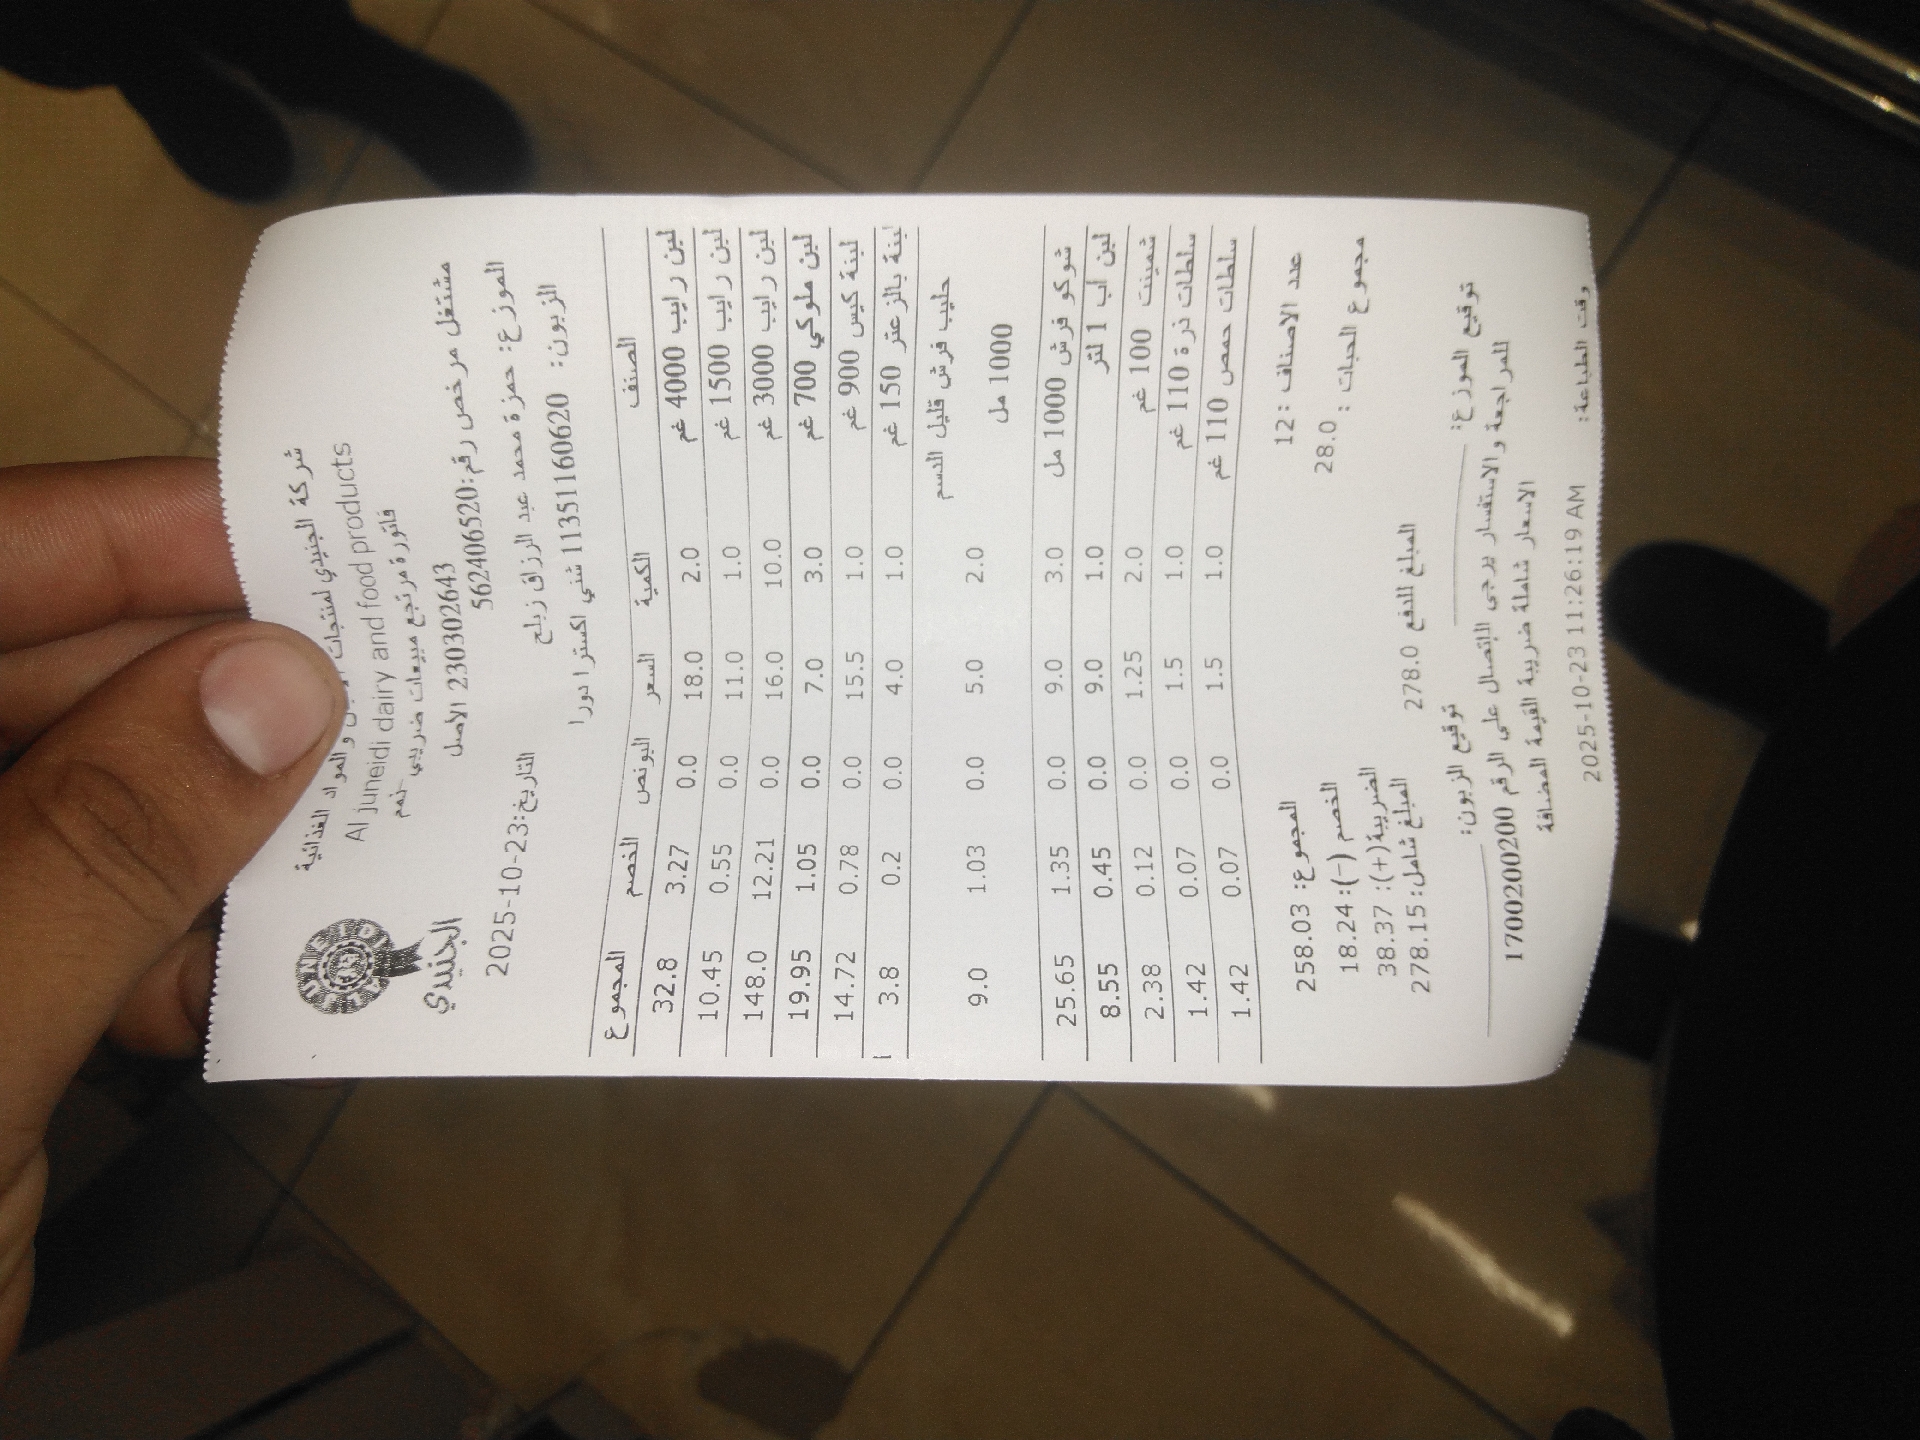 شركة الجنيدي لمنتجات و المواد الغذائية
Al juneidi dairy and food products
فاتورة مرتجع مبيعات ضريبي - ذمم
230302643 الاصل
مشتغل مرخص رقم:562406520
JUNEIDI
الجنيدي
الموزع: حمزة محمد عبد الرزاق زبلح
التاريخ:23-10-2025
الزبون: 1135116062​0 شني اكسترا دورا
الصنف الكمية السعر البونص الخصم المجموع
لبن رايب 4000 غم 2.0 18.0 0.0 3.27 32.8
لبن رايب 1500 غم 1.0 11.0 0.0 0.55 10.45
لبن رايب 3000 غم 10.0 16.0 0.0 12.21 148.0
لبن ملوكي 700 غم 3.0 7.0 0.0 1.05 19.95
لبنة كيس 900 غم 1.0 15.5 0.0 0.78 14.72
لبنة بالزعتر 150 غم 1.0 4.0 0.0 0.2 3.8
حليب فرش قليل الدسم
1000 مل 2.0 5.0 0.0 1.03 9.0
شوكو فرش 1000 مل 3.0 9.0 0.0 1.35 25.65
لبن اب 1 لتر 1.0 9.0 0.0 0.45 8.55
شمينت 100 غم 2.0 1.25 0.0 0.12 2.38
سلطات ذرة 110 غم 1.0 1.5 0.0 0.07 1.42
سلطات حمص 110 غم 1.0 1.5 0.0 0.07 1.42
عدد الاصناف :12
المجموع: 258.03
مجموع الحبات : 28.0
الخصم (-): 18.24
الضريبة(+): 38.37
المبلغ شامل: 278.15
المبلغ للدفع 278.0
توقيع الموزع: توقيع الزبون:
للمراجعة والاستفسار يرجى الاتصال على الرقم 1700200200
الاسعار شاملة ضريبة القيمة المضافة
وقت الطباعة: 2025-10-23 11:26:19 AM